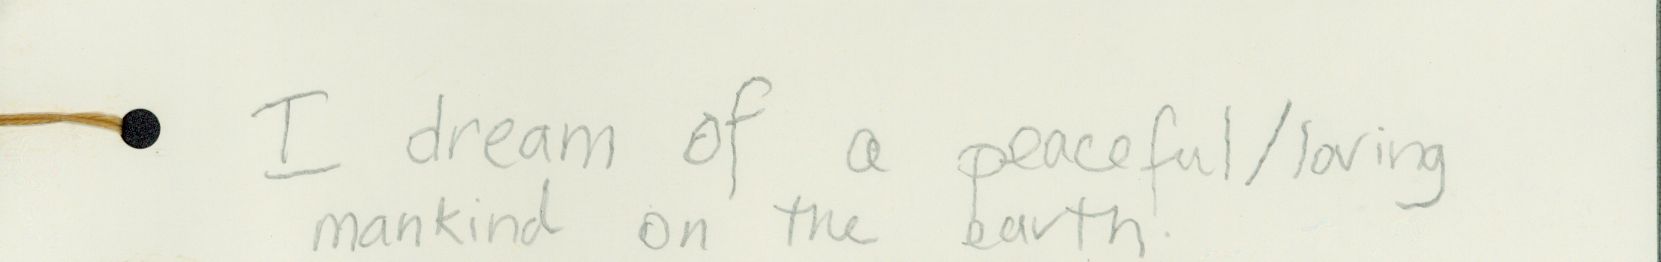 I dream of a peaceful/loving
mankind on the earth.